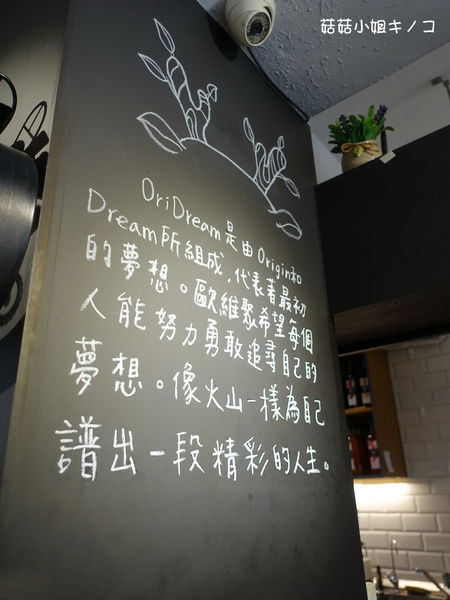 菇菇小姐キノコ
OriDream是由Origin和
Dream所組成,代表著最初
的夢想。歐維聚希望每個
人能努力勇敢追尋自己的
夢想。像火山一樣為自己
譜出一段精彩的人生。